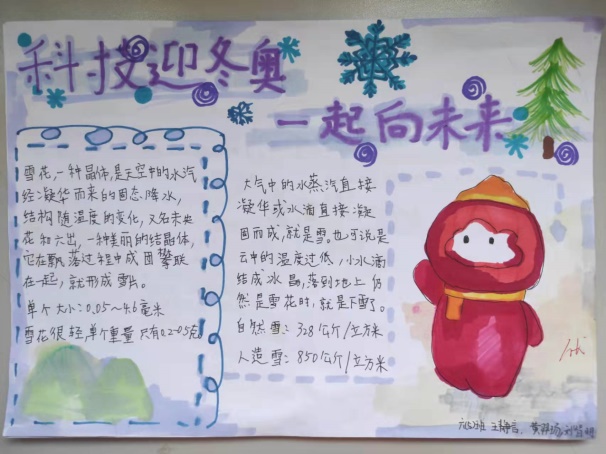 科技迎冬奥
一起向未来
雪花,一种晶体,是天空中的水汽
经凝华而来的固态降水,
结构随温度的变化,又名未央
花和六出,一种美丽的结晶体,
它在飘落过程中成团攀联
在一起,就形成雪片。
单个大小:0.05~4.6毫米
雪花很轻,单个重量只有0.2-0.5克
大气中的水蒸汽直接
凝华或水滴直接凝
固而成,就是雪。也可说是
云中的温度过低,小水滴
结成冰晶,落到地上仍
然是雪花时,就是下雪了。
自然雪:328公斤/立方米
人造雪:850公斤/立方米
王静言,黄